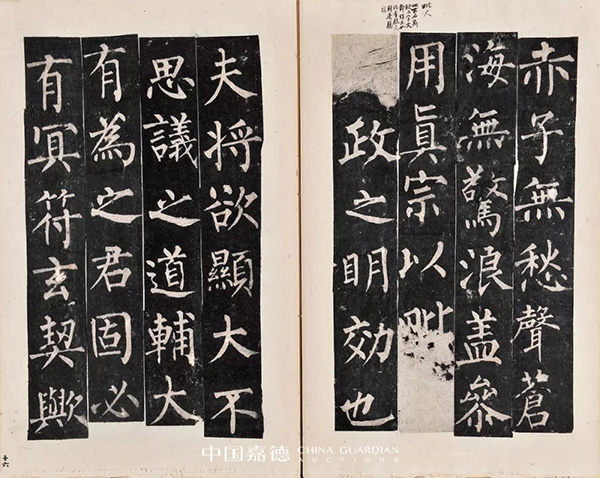 毗大
赤子無愁聲蒼
海無驚浪蓋參
用眞宗以毗
政之明効也
夫将欲顯大不
思議之道輔大
有為之君固必
有冥符玄契歟
十六
中国嘉德 CHINA GUARDIAN
AUCTIONS